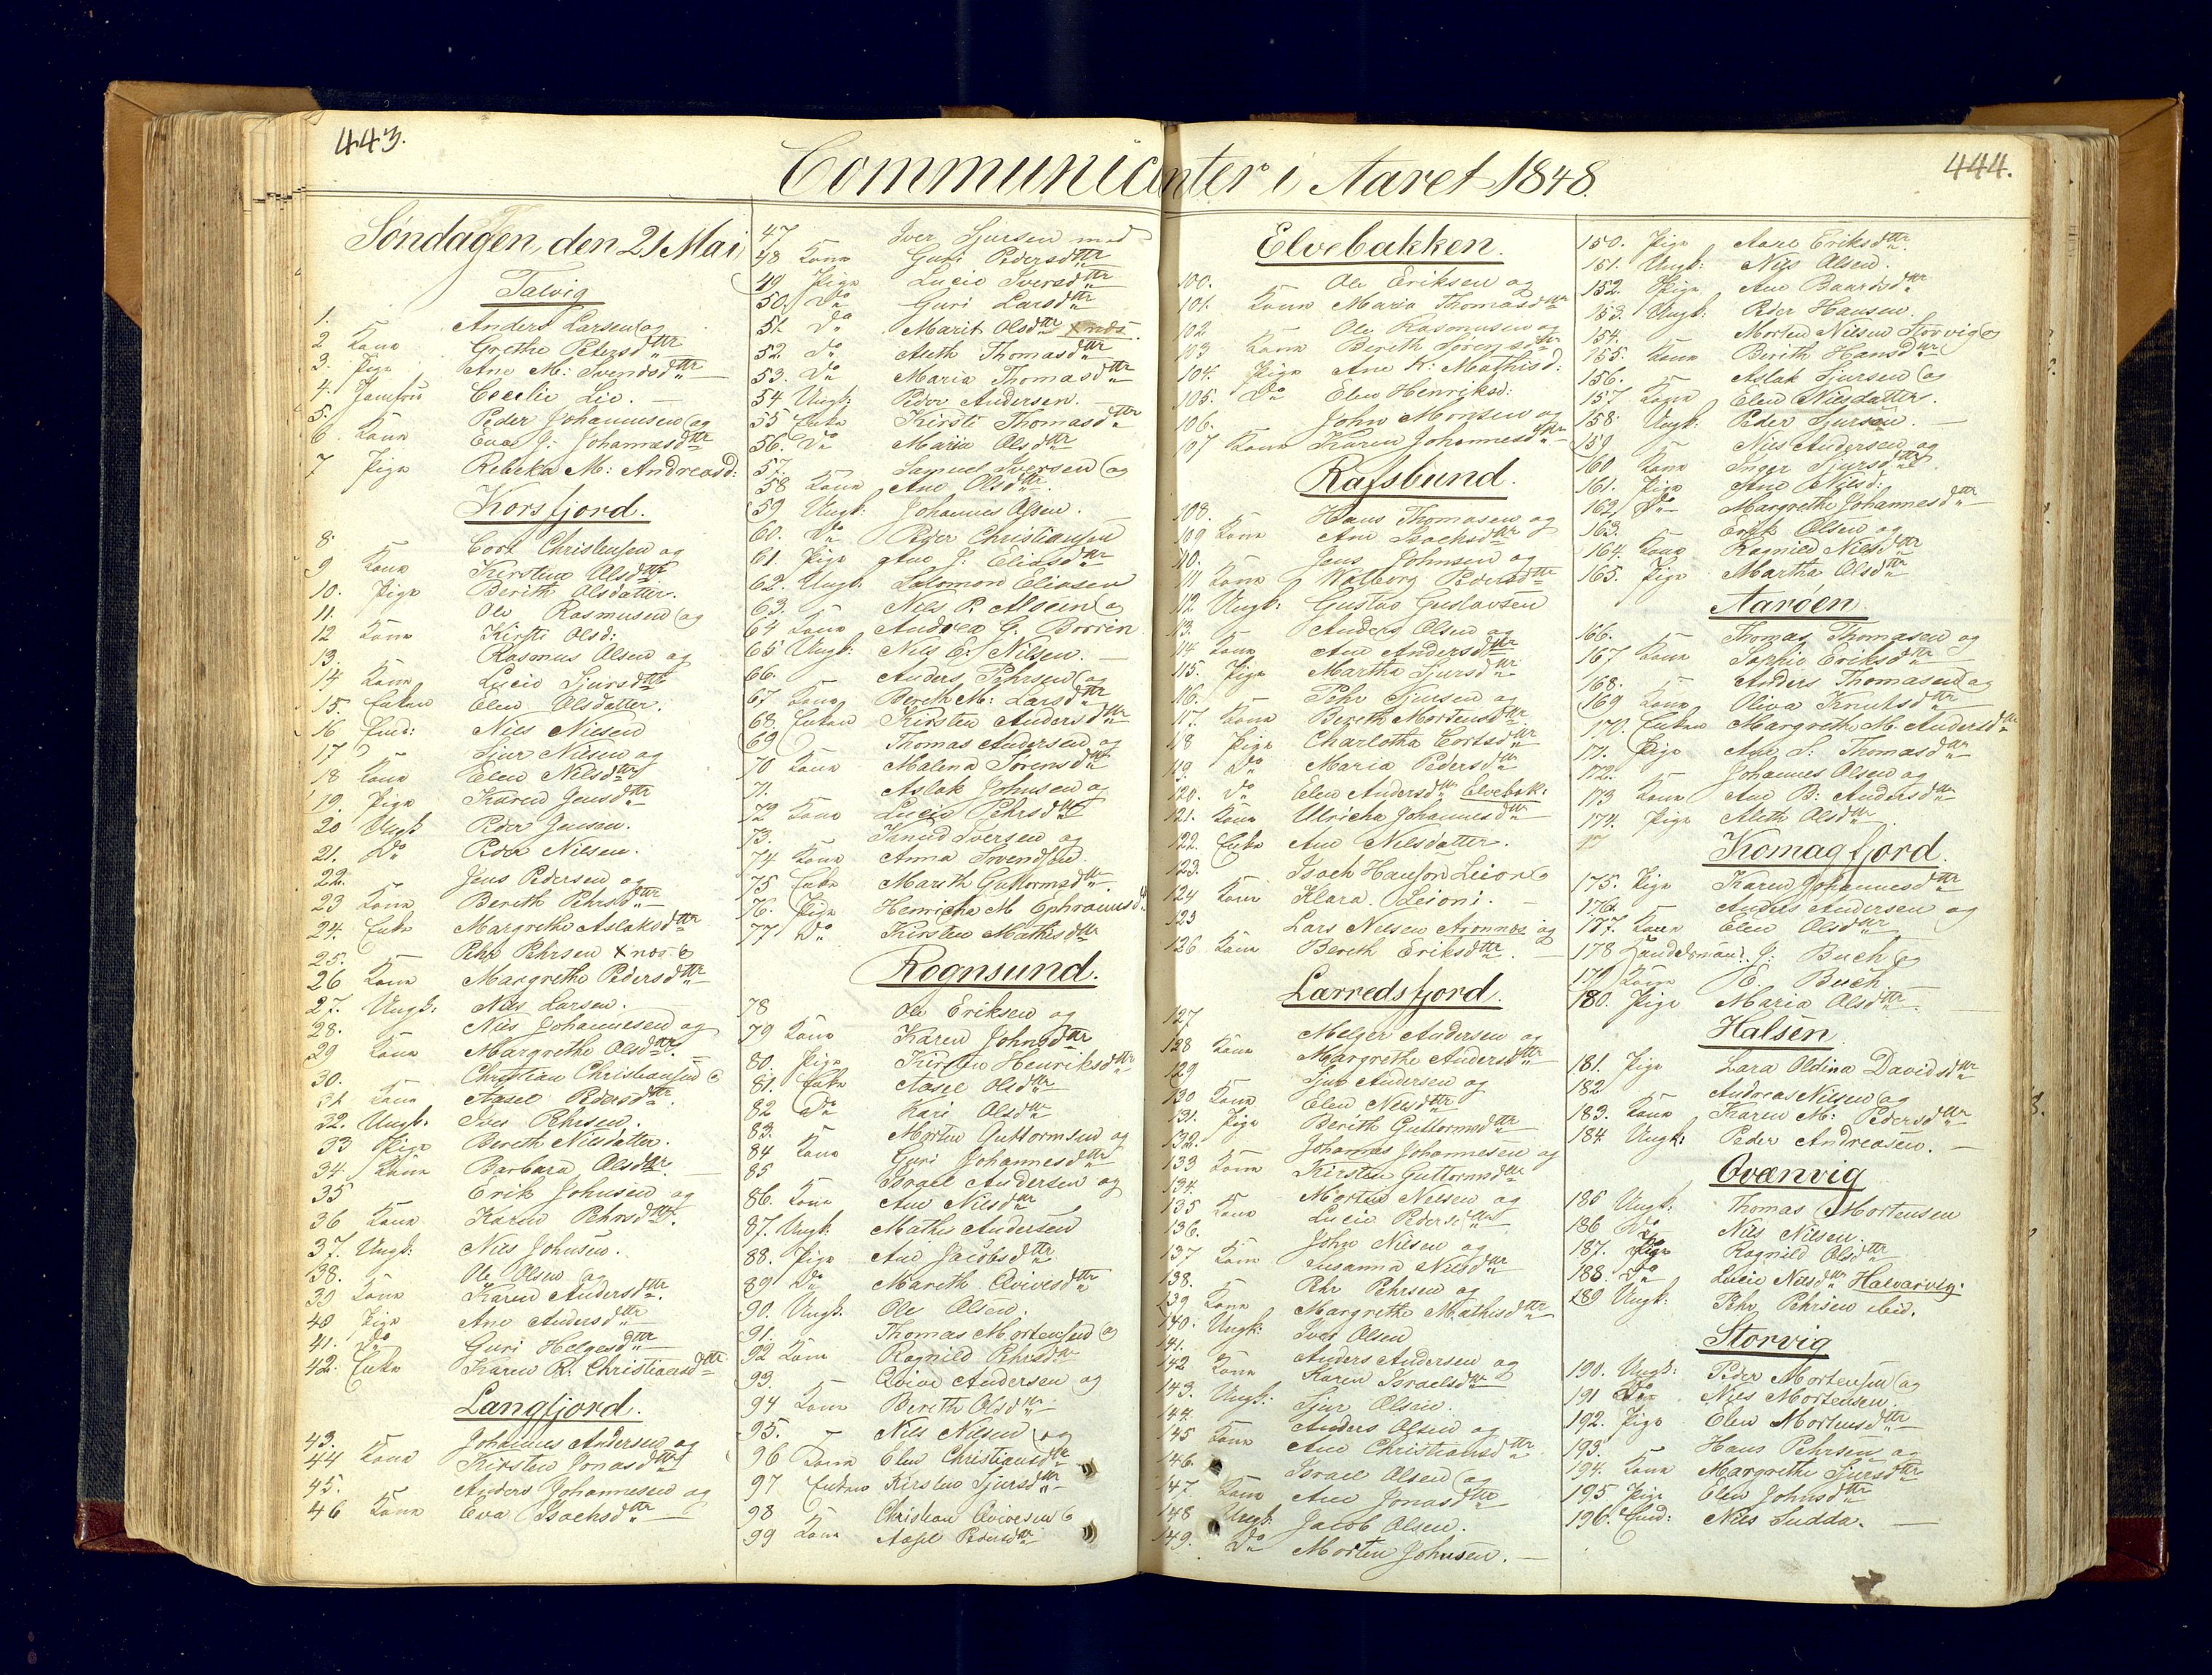 443.
444.
Communicanter i Aaret 1848.
Søndagen, den 21 Mai
Talvig
1. Anders Larsen og
2 Kone Grethe Petersdttr
3. Pige Ane M: Svendsdttr
4. Jomfru Cecilie Lie.
5. Peder Johannesen og
6. Kone Eva J: Johannesdttr
7 Pige Rebeka M: Andreasd:
Korsfjord.
8. Cort Christensen og
9 Kone Kirsten Olsdttr
10. Pige Berith Olsdatter.
11. Ole Rasmusen og
12 Kone Kirsti Olsd:
13. Rasmus Olsen og
14 Kone Lucie Sjursdttr
15. Enken Elen Olsdatter.
16 Nils Nilsen
17 Sjur Nilsen og
18 Kone Elen Nilsdttr
19. Pige Karen Jensdttr
20 Ungk Peder Jensen.
21. Do Peder Nilsen.
22. Jens Pedersen og
23 Kone Bereth Pehrsdttr
24. Enke Margrethe Aslaksdttr
25. Pehr Pehrsen
26 Kone Margrethe Pedersdttr
27. Ungk: Nils Larsen.
28. Nils Johannesen og
29 Kone Margrethe Olsdttr.
30. Christian Christiansen og
31 Kone Aasel Pedersdttr.
32. Ungk: Iver Pehrsen.
33 Pige Bereth Nilsdatter.
34. Kone Barbara Olsdttr.
35 Erik Johnsen og
36 Kone Karen Pehrsdttr.
37. Ungk: Nils Johnsen.
38. Ole Olsen og
39 Kone Karen Andersdttr.
40 Pige Ane Andersdttr
41. Do Guri Helgesdttr
42. Enke Karen R. Christiansdttr
Langfjord.
43. Johannes Andersen og
44 Kone Kirsten Jonasdttr
45. Anders Johannesen og
46 Kone Eva Isachsdttr
47 Iver Sjursen med
48 Kone Guri Pedersdttr
49 Pige Lucie Iversdttr
50. Do Guri Larsdttr
51. Do Marit Olsdttr
52. Do Aleth Thomasdttr
53. Do Maria Thomasdttr
54 Ungk: Peder Andersen.
55 Enke Kirsti Thomasdttr
56. Do Maria Olsdttr
57. Samuel Iversen og
58 Kone Ane Olsdttr.
59 Ungk: Johannes Olsen.
60. Do Peder Christiansen
61. Pige Ane J. Eliasdttr
62. Ungk. Salomon Eliasen
63. Nils P. og
64 Kone Andrea G. Borrin
65 Ungk: Nils C. Nilsen.
66. Anders Pehrsen og
67 Kone Bereth M: Larsdttr
68. Enken Kirsten Andersdttr
69 Thomas Andersen og
70 Kone Malena Sørensdttr
71. Aslak Johnsen og
72 Kone Lucie Pehrsdttr
73. Knud Iversen og
74 Kone Anna Svendsen.
75 Enke Mareth Guttormsdttr.
76. Pige Henricha M Ephraimsd.
77 Do Kirsten Mathisdttr
Rognsund.
78 Ole Eriksen og
79 Kone Karen Johnsdttr
80. Pige Kirsten Henriksdttr
81. Enke Aasel Olsdttr
82 Do Kari Olsdttr
83. Morten Guttormsen og
84 Kone Guri Johannesdttr
85 Israel Andersen og
86. Kone Ane Nilsdttr
87. Ungk: Mathis Andersen
88. Pige Ane Jacobsdttr
89 Do Mareth Qvivesdttr
90. Ungk: Ole Olsen.
91. Thomas Mortensen og
92 Kone Ragnild Pehrsdttr
93. Qvive Andersen og
94 Kone Bereth Olsdttr
95. Nils Nilsen og
96 Kone Elen Christiansdttr
97 Enken Kirsten Sjursdttr
98 Christian Qvivesen og
99 Kone Aasel Pedersdttr
Elvebakken.
100. Ole Eriksen og
101. Kone Maria Thomasdttr
102. Ole Rasmusen og
103 Kone Bereth Sørensdttr
104. Pige Ane K: Mathisd:
105. Do Elen Henriksd:
106. John Monsen og
107 Kone Karen Johannesdttr
Rafsbund.
108. Hans Thomasen og
109 Kone Ane Isachsdttr
110. Jens Johnsen og
111 Kone Walborg Pedersdttr
112 Ungk: Gustav Gustavsen
113. Anders Olsen og
114 Kone Ane Andersdttr
115. Pige Martha Sjursdttr
116. Pehr Sjursen og
117. Kone Bereth Mortensdttr.
118 Pige Charlotha Cortsdttr
119. Do Maria Pedersdttr
120. Do Elen Andersdttr Elvebak:
121. Kone Ulricha Johannesdttr
122. Enke Ane Nilsdatter.
123. Isach Hansen Leion og
124 Kone Klara Leioni.
125 Lars Nilsen Aronnes og
126 Kone Bereth Eriksdttr.
Lærredsfjord.
127 Melger Andersen og
128 Kone Margrethe Andersdttr
129 Sjur Andersen og
130 Kone Elen Nilsdttr
131. Pige Berith Guttormsdttr
132. Johannes Johannesen og
133 Kone Kirsten Guttormsdttr
134. Morten Nilsen og
135 Kone Lucie Pedersdttr
136. John Nilsen og
137 Kone Susanna Nilsdttr
138. Pehr Pehrsen og
139 Kone Margrethe Mathisdttr
140. Ungk: Iver Olsen
141. Anders Andersen og
142 Kone Karen Israelsdttr
143. Ungk: Sjur Olsen.
144. Anders Olsen og
145 Kone Ane Christiansdttr
146. Israel Olsen og
147. Kone Ane Jonasdttr
148 Ungk: Jacob Olsen.
149. Do Morten Johnsen.
150. Pige Aase Eriksdttr.
151. Ungk: Nils Olsen.
152. Pige Ane Baardsdttr
153. Ungk: Peder Hansen.
154. Morten Nilsen Storvig og
155. Kone Berith Hansdttr
156. Aslak Sjursen og
157 Kone Elen Nilsdatter.
158. Ungk: Peder Sjursen.
159 Nils Andersen og
160 Kone Inger Sjursdttr
161. Pige Ane Nilsd:
162. Do Margrethe Johannesdttr
163. Erik Olsen og
164. Kone Ragnild Nilsdttr
165. Pige Martha Olsdttr
Aarøen.
166. Thomas Thomasen og
167 Kone Sophie Eriksdttr
168. Anders Thomasen og
169 Kone Oliva Knutsdttr
170. Enken Margreth M. Andersdttr
171. Pige Ane S. Thomasdttr
172. Johannes Olsen og
173 Kone Ane B: Andersdttr
174. Pige Aleth Olsdttr
Komagfjord.
175. Pige Karen Johannesdttr
176. Anders Andersen og
177. Kone Elen Olsdttr
178 Handelsmand. J: Buch og
179 Kone E. Buch.
180. Pige Maria Olsdttr.
Halsen
181. Pige Lara Oldina Davidsdttr
182 Andreas Nilsen og
183. Kone Karen M: Pedersdttr
184 Ungk: Peder Andreasen.
Qvænvig
185 Ungk: Thomas Mortensen
186 Do Nils Nilsen.
187. Pige Ragnild Olsdttr
188. Do Lucie Nilsdttr Halvarvig.
189 Ungk: Pehr Pehrsen ibid.
Storvig
190. Ungk: Peder Mortensen og
191 Do Nils Mortensen.
192. Pige Elen Mortensdttr
193. Hans Pehrsen og
194. Kone Margrethe Sjursdttr
195 Pige Elen Johnsdttr
196. Nils Sudda.